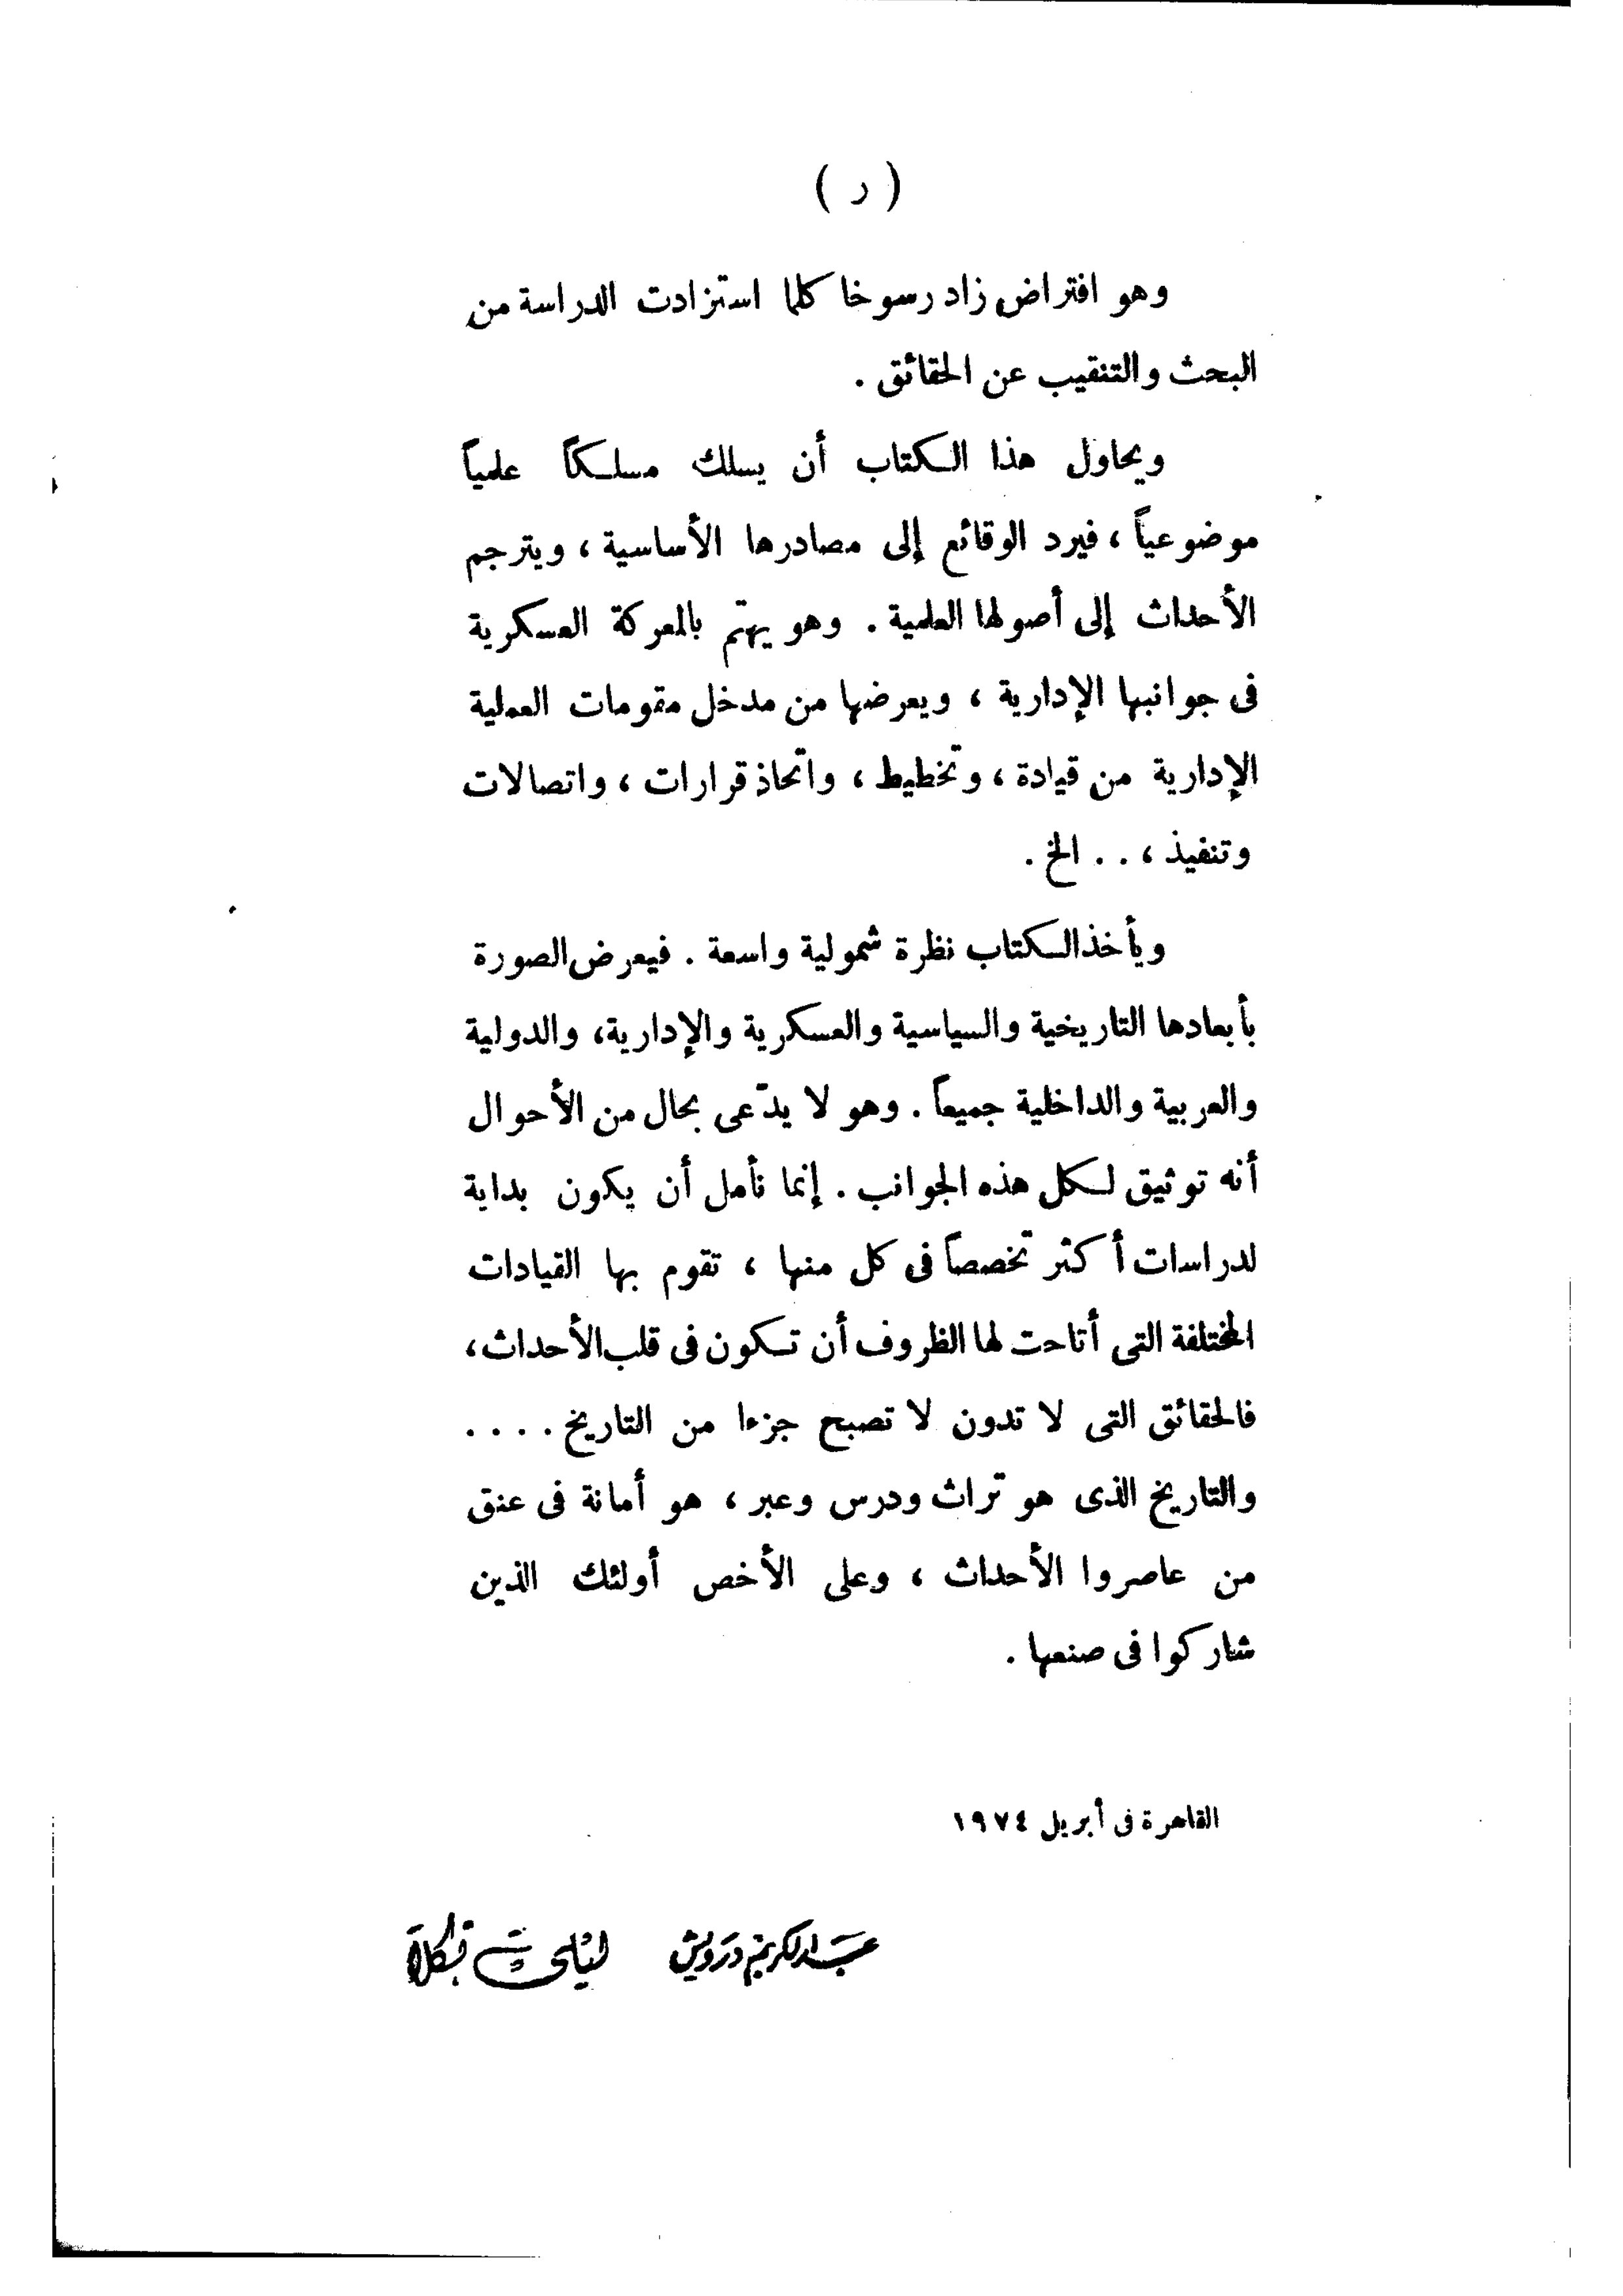 ( ر )
وهو افتراض زاد رسوخا كلما استزادت الدراسة من
البحث والتنقيب عن الحقائق .
ويحاول هذا الكتاب أن يسلك مسلكاً علمياً
موضوعياً ، فيرد الوقائع إلى مصادرها الأساسية ، ويترجم
الأحداث إلى أصولها العلمية . وهو يهتم بالمعركة العسكرية
فى جوانبها الإدارية ، ويعرضها من مدخل مقومات العملية
الإدارية من قيادة ، وتخطيط ، واتخاذ قرارات ، واتصالات
وتنفيذ ، . . الخ .
ويأخذ الكتاب نظرة شمولية واسعة . فيعرض الصورة
بأبعادها التاريخية والسياسية والعسكرية والإدارية، والدولية
والعربية والداخلية جميعاً . وهو لا يدّعى بحال من الأحوال
أنه توثيق لكل هذه الجوانب . إنما نأمل أن يكون بداية
لدراسات أكثر تخصصاً فى كل منها ، تقوم بها القيادات
المختلفة التى أتاحت لها الظروف أن تكون فى قلب الأحداث ،
فالحقائق التى لا تدون لا تصبح جزءا من التاريخ . . . .
والتاريخ الذى هو تراث ودرس وعبر ، هو أمانة فى عنق
من عاصروا الأحداث ، وعلى الأخص أولئك الذين
شاركوا فى صنعها .
القاهرة فى أبريل ١٩٧٤
عبد الكريم درويش ليلى تكلا